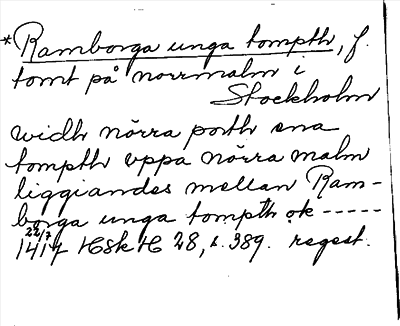 *Ramborga unga tompth, f.
tomt på norrmalm i
Stockholm
widh nörra porth ena
tompth uppa nörra malm
liggiandes mellan Ram-
borga unga tompth ok -----
22/7
1417 HSkH 28, s. 389. regest.